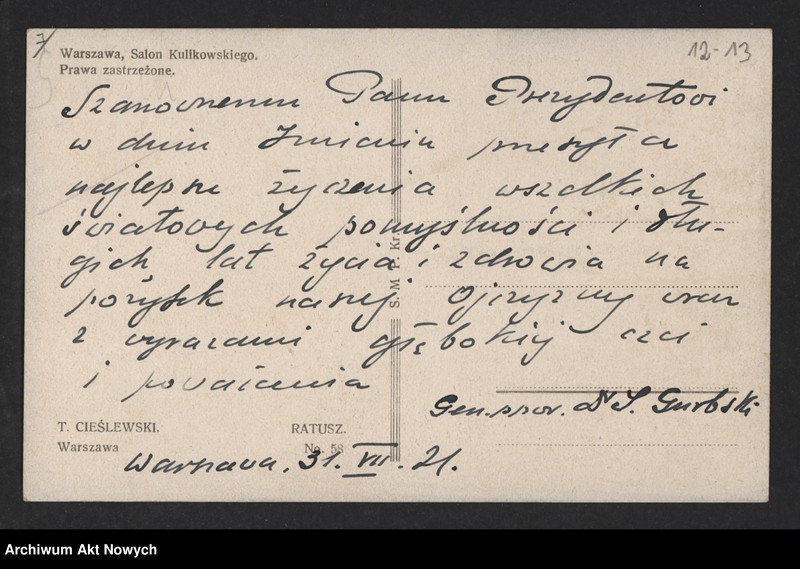 7
12-13
Warszawa, Salon Kulikowskiego.
Prawa zastrzeżone.
Szanownemu Panu Prezydentowi
w dniu Imienin przesyła
najlepsze życzenia wszelkich
światowych pomyślności i dłu-
gich lat życia i zdrowia na
pożytek naszej Ojczyzny wraz
z wyrazami głębokiej czci
i poważania
Gen. ppor. Dr S.
S. M. P. Kr.
T. CIEŚLEWSKI.
Warszawa
RATUSZ.
No. 58
Warszawa, 31. VII. 21.
Archiwum Akt Nowych